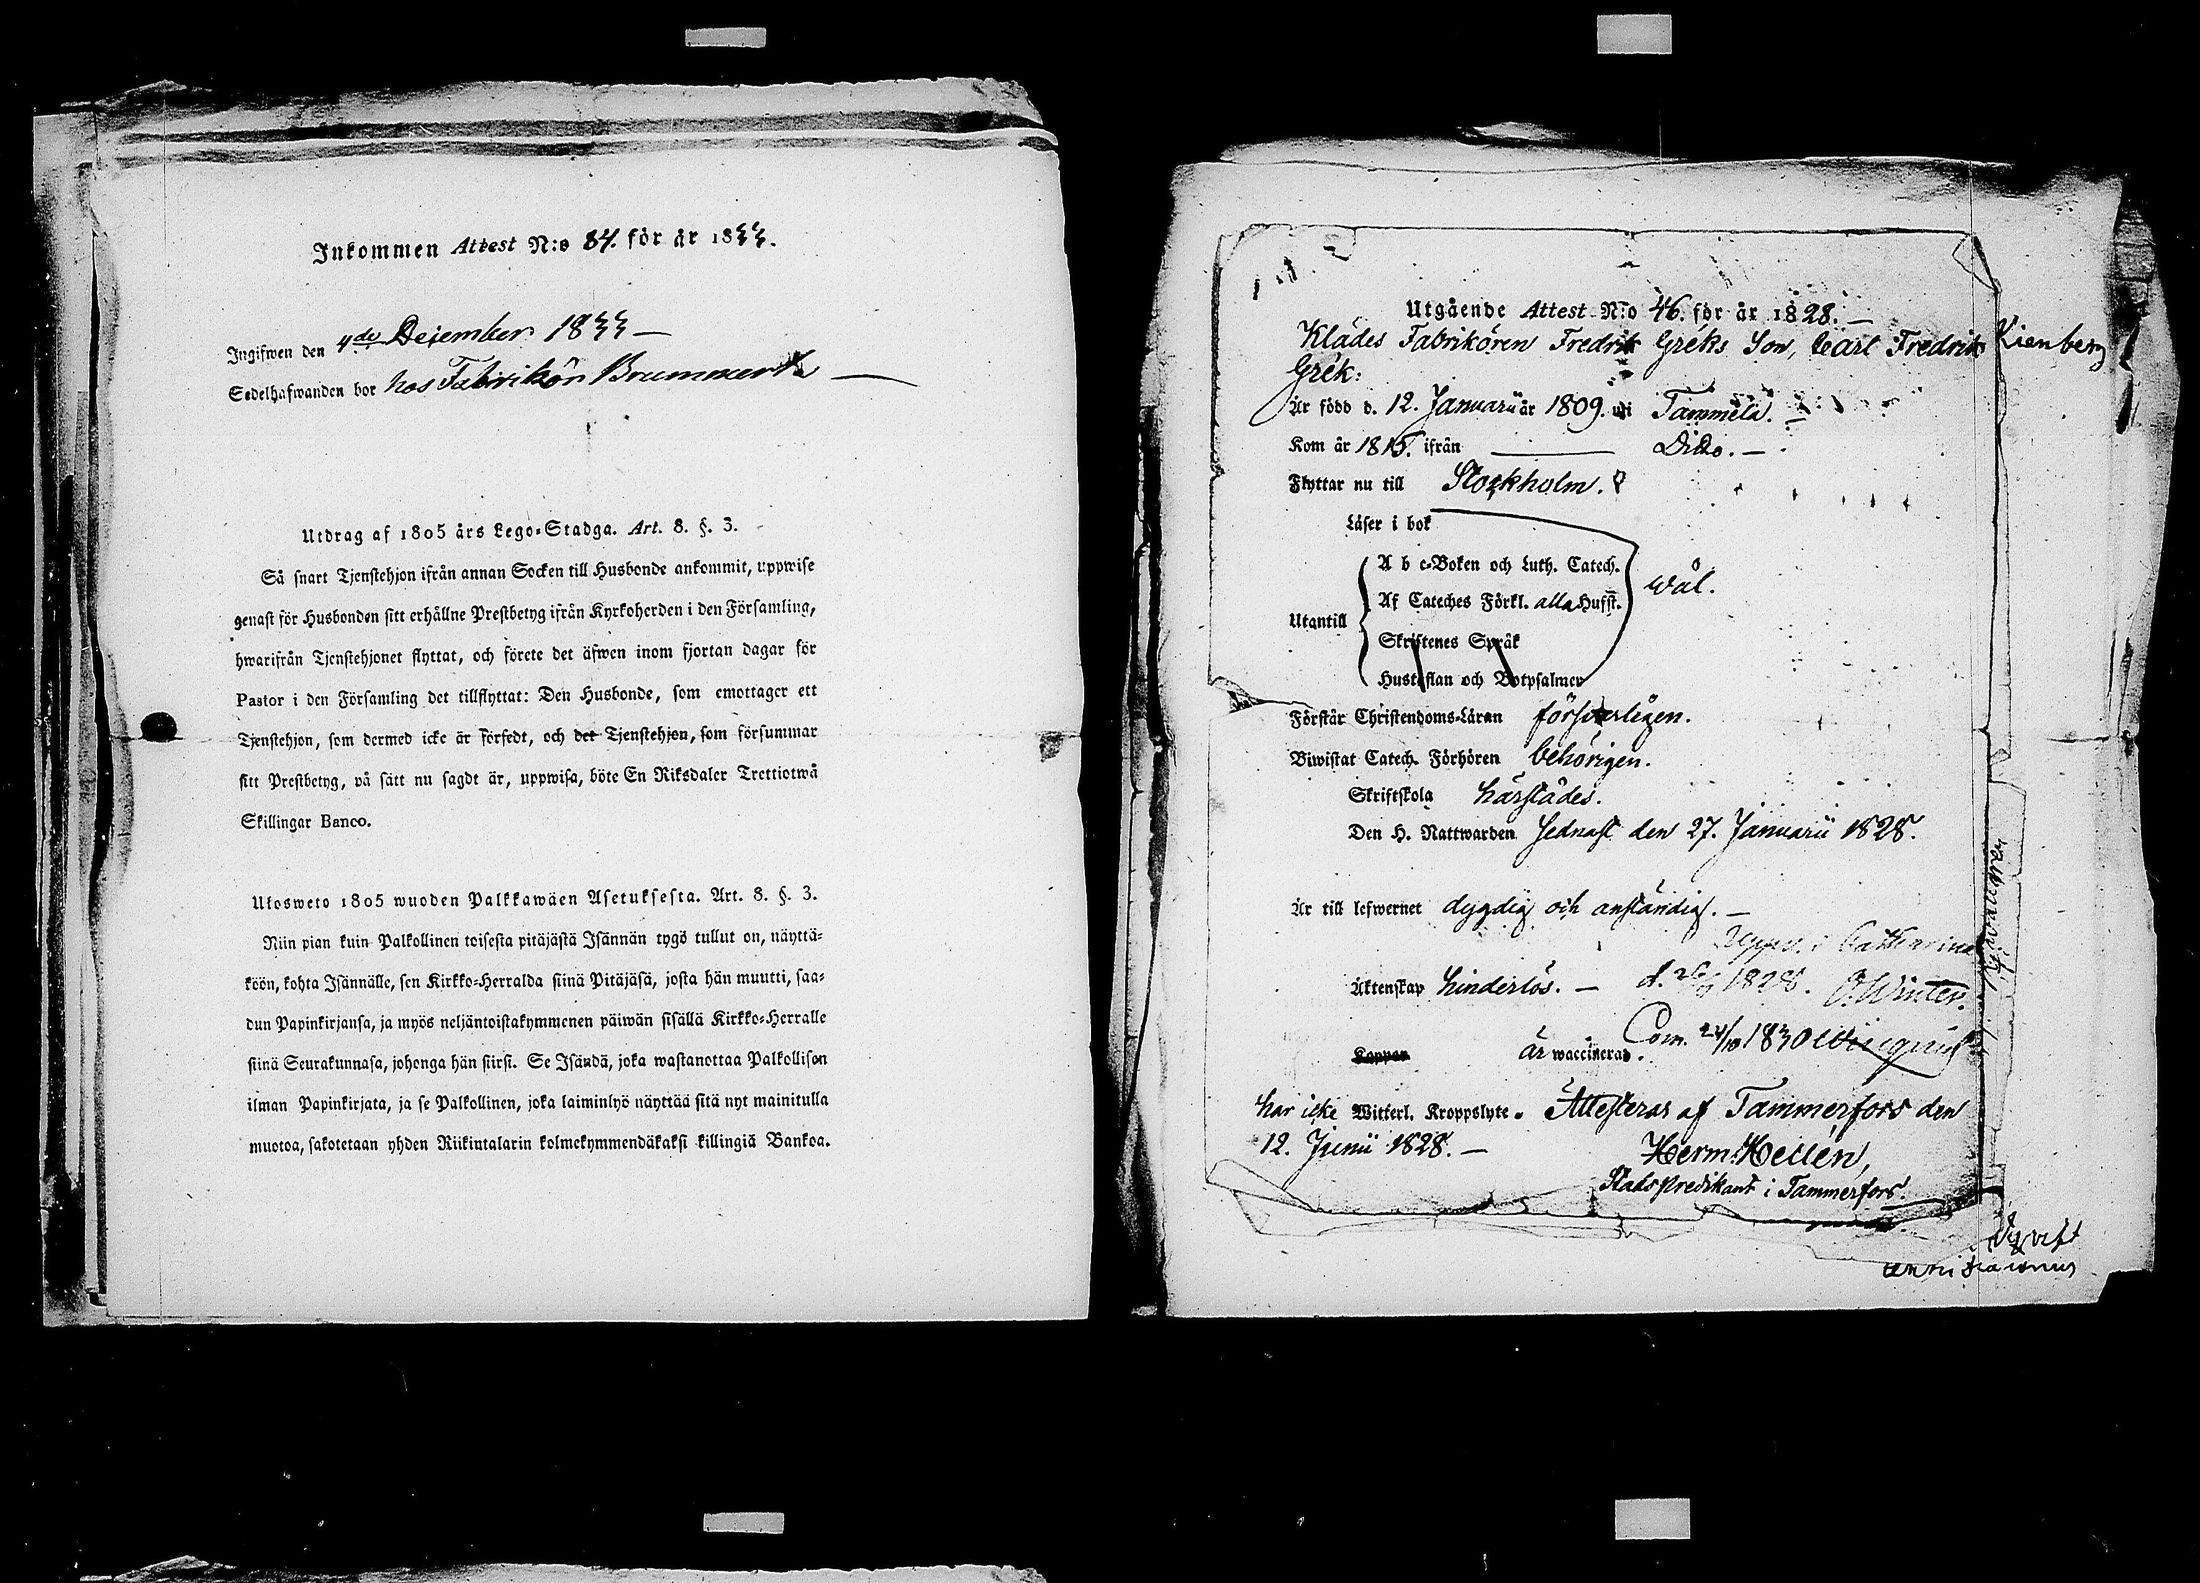 Inkommen Attest N:o 84. för år 1833.
Ingifwen den 4de December 1833 —
Sedelhafwanden bor hos Fabrikör Brummerk —
Utdrag af 1805 års Lego-Stadga. Art. 8. §. 3.
Så snart Tjenstehjon ifrån annan Socken till Husbonde ankommit, uppwise
genast för Husbonden sitt erhållne Prestbetyg ifrån Kyrkoherden i den Församling,
hwarifrån Tjenstehjonet flyttat, och förete det äfwen inom fjortan dagar för
Pastor i den Församling det tillflyttat: Den Husbonde, som emottager ett
Tjenstehjon, som dermed icke är försedt, och det Tjenstehjon, som försummar
sitt Prestbetyg, på sätt nu sagdt är, uppwisa, böte En Riksdaler Trettiotwå
Skillingar Banco.
Ulosweto 1805 wuoden Palkkawäen Asetuksesta. Art. 8. §. 3.
Niin pian kuin Palkollinen toisesta pitäjästä Isännän tygö tullut on, näyttä-
köön, kohta Isännälle, sen Kirkko-Herralda siinä Pitäjäsä, josta hän muutti, saa-
dun Papinkirjansa, ja myös neljäntoistakymmenen päiwän sisällä Kirkko-Herralle
siinä Seurakunnasa, johonga hän siirsi. Se Isändä, joka wastanottaa Palkollisen
ilman Papinkirjata, ja se Palkollinen, joka laiminlyö näyttää sitä nyt mainitulla
muotoa, sakotetaan yhden Riikintalarin kolmekymmendäkaksi killingiä Bankoa.
Utgående Attest N:o 46. för år 1828. —
Klädes Fabrikören Fredrik Greks Son, Carl Fredrik Kienberg
Grek:
Är född d. 12. Januarii år 1809. uti Tammela. —
Kom år 1815. ifrån — Dito. —
Flyttar nu till Stockholm.
Läser i bok
A b c-Boken och Luth. Catech.
wäl.
Af Cateches Förkl. alla Hufst.
Utantill
Skriftenes Språk
Hustaflan och Botpsalmer
Förstår Christendoms-Läran försvarligen.
Biwistat Catech. Förhören behörigen.
Skriftskola härstädes.
Den H. Nattwarden sednast den 27. Januarii 1828.
Är till lefwernet dygdig och anständig. —
Upps. i Catharina
Äktenskap hinderlös. — d. 1828. O. Winter.
Com. 24/10 1830
Koppor är waccinerad.
har icke Witterl. Kroppslyte. Attesteras af Tammerfors den
12. Junii 1828. — Herm: Hellén,
Stads predikant i Tammerfors.